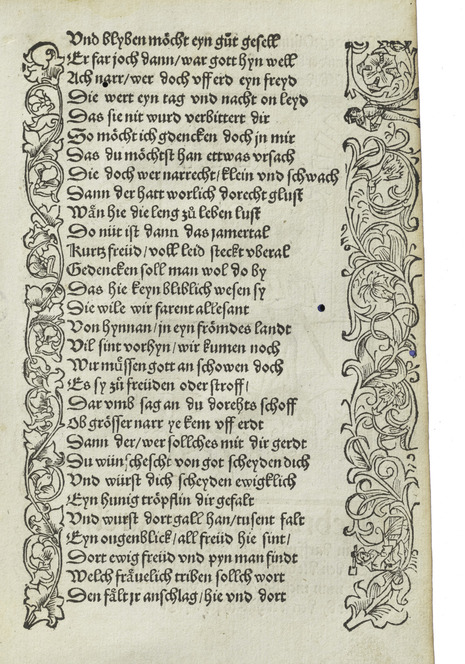 Vnd blyben möcht eyn gůt gesell
Er far joch dann / war gott hyn well
Ach narr / wer doch vff erd eyn freyd
Die wert eyn tag vnd nacht on leyd
Das sie nit wurd verbittert dir
So möcht ich gdencken doch jn mir
Das du möchtst han ettwas vrsach
Die doch wer narrecht / klein vnd schwach
Dann der hatt worlich dorecht glust
Wän hie die leng zů leben lust
Do nüt ist dann das jamertal
Kurtz freüd / voll leid steckt vberal
Gedencken soll man wol do by
Das hie keyn bliblich wesen sy
Die wile wir farent allesant
Von hynnan / jn eyn frömdes landt
Vil sint vorhyn / wir kumen noch
Wir müssen gott an schowen doch
Es sy zů freüden oder stroff /
Dar vmb sag an du dorehts schoff
Ob grösser narr ye kem vff erdt
Dann der / wer sollches mit dir gerdt
Du wünschescht von got scheyden dich
Vnd würst dich scheyden ewigklich
Eyn hunig tröpflin dir gefalt
Vnd wurst dort gall han / tusent falt
Eyn ougenblick / all freüd hie sint /
Dort ewig freüd vnd pyn man findt
Welch fräuelich triben sollch wort
Den fält jr anschlag / hie vnd dort